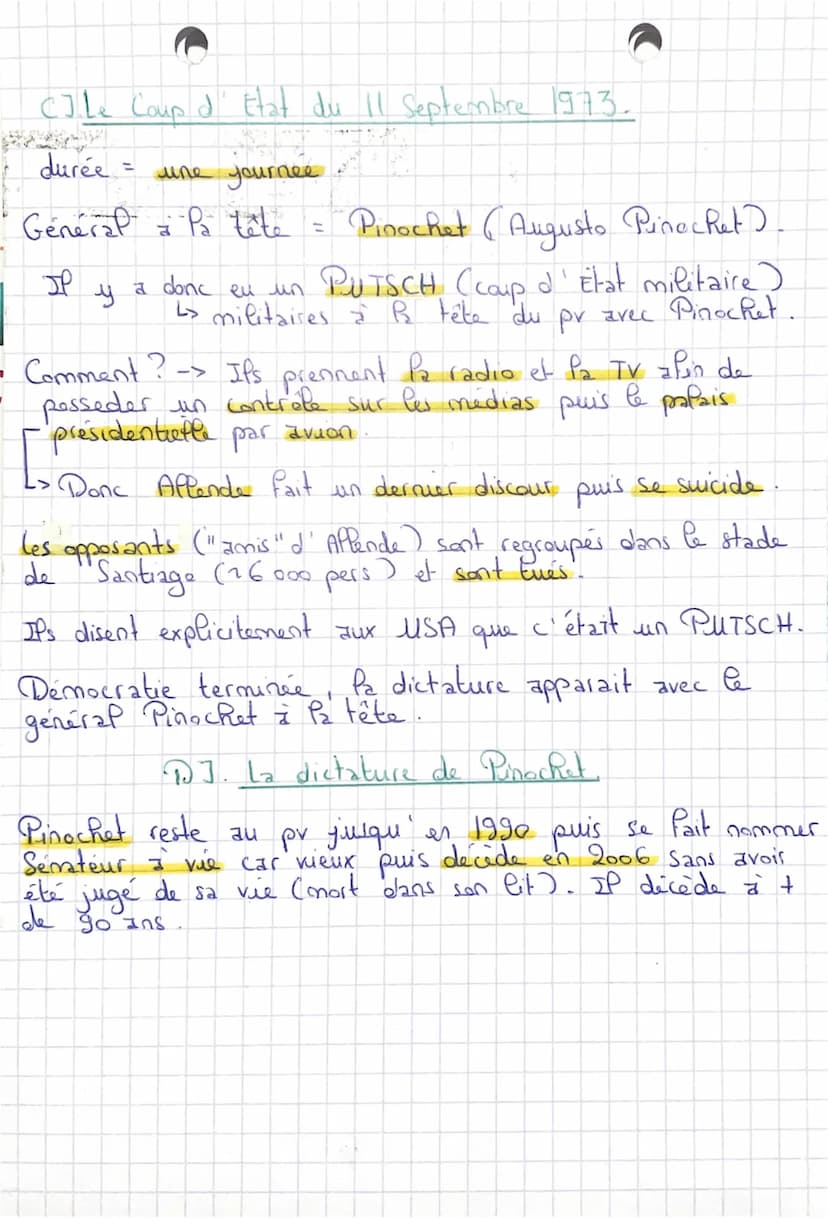 C]. Le Coup d'État du 11 Septembre 1973.
durée = une journée
Général à la tête = Pinochet (Augusto Pinochet).
Il y a donc eu un PUTSCH (coup d'État militaire)
↳ militaires à la tête du pv avec Pinochet.
Comment ? -> Ils prennent la radio et la TV afin de
posseder un contrôle sur les médias puis le palais
présidentielle par avion.
↳ Donc Allende fait un dernier discour puis se suicide.
Les opposants ("amis" d'Allende) sont regroupés dans le stade
de Santiago (~6 000 pers) et sont tués.
Ils disent explicitement aux USA que c'était un PUTSCH.
Démocratie terminée, la dictature apparait avec le
général Pinochet à la tête.
D]. La dictature de Pinochet
Pinochet reste au pv jusqu'en 1990 puis se fait nommer
Sénateur à vie car vieux puis décède en 2006 sans avoir
été jugé de sa vie (mort dans son lit). Il décède à +
de 90 ans.